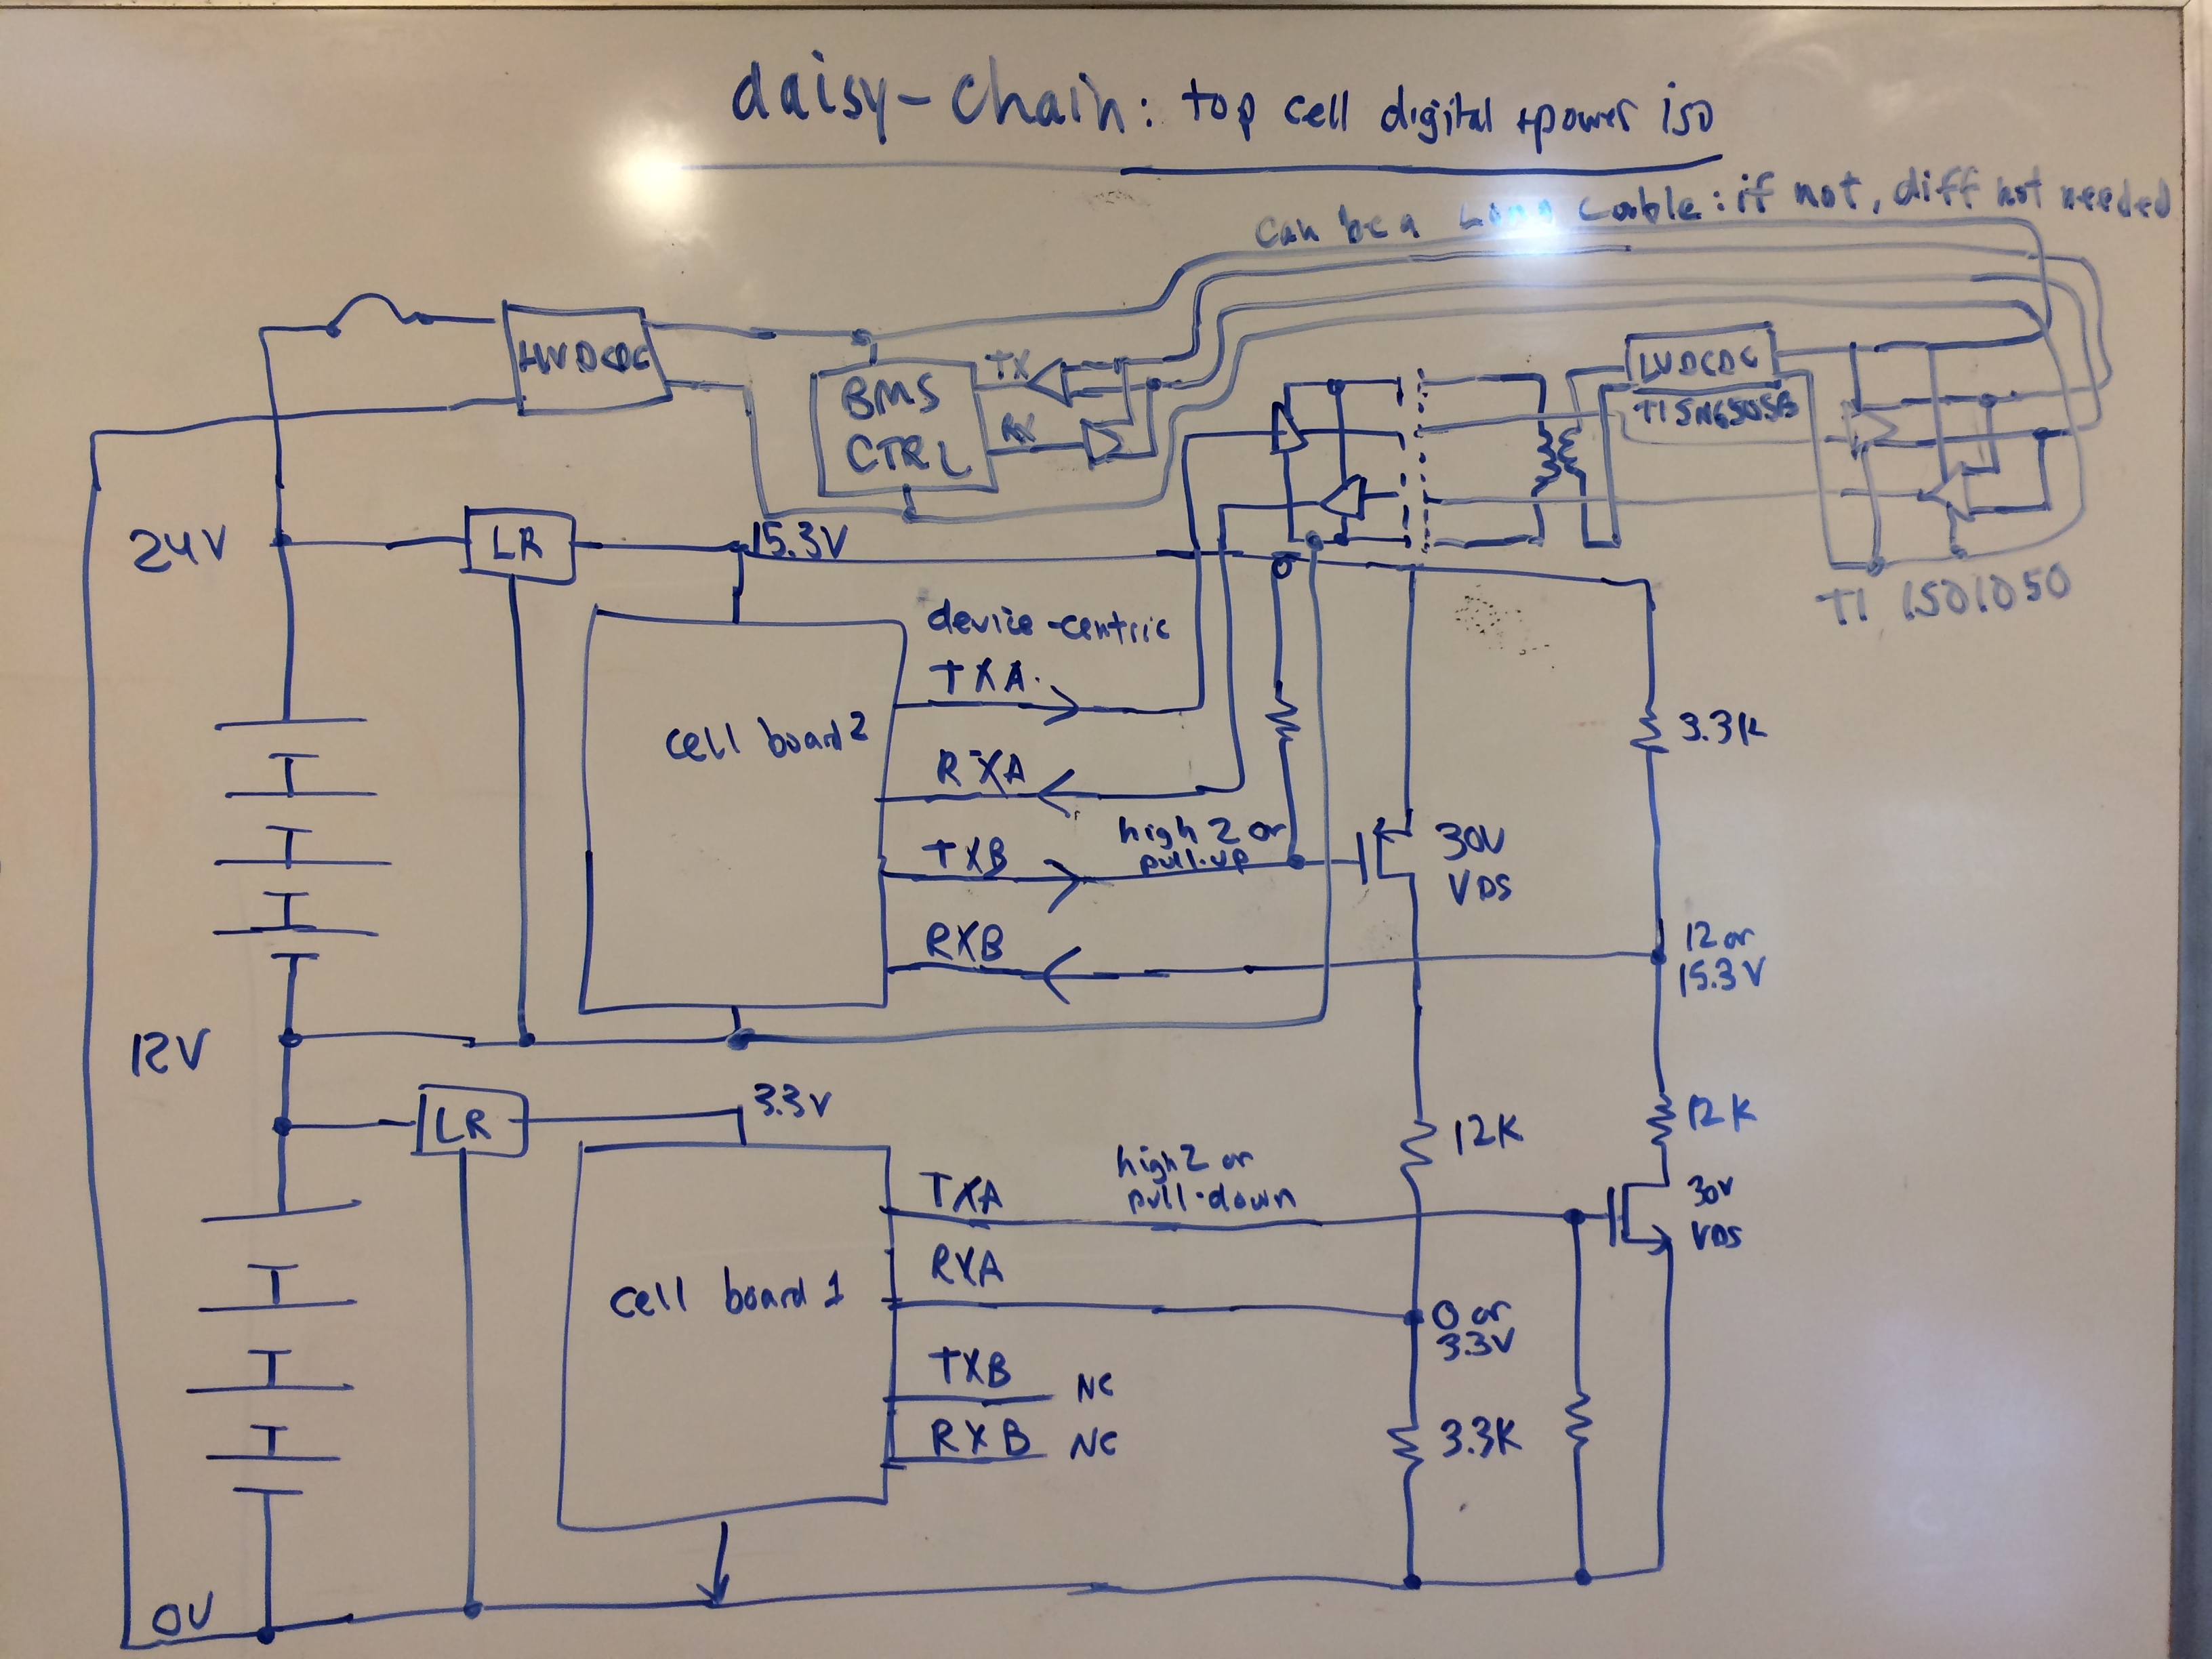 daisy-chain: top cell digital +power iso
can be a Long cable: if not, diff not needed
HVDCDC
BMS
CTRL
TX
RX
LVDCDC
TI SN6505B
TI ISO1050
24V
LR
15.3V
device-centric
TXA
cell board 2
RXA
high Z or
pull-up
TXB
RXB
30V
VDS
3.3K
12 or
15.3V
12V
LR
3.3V
12K
12K
high Z or
pull-down
TXA
30V
VDS
RXA
cell board 1
0 or
3.3V
TXB NC
RXB NC
3.3K
0V